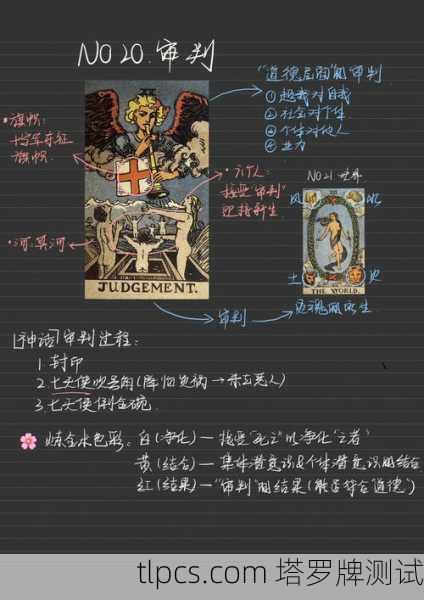 NO 20. 审判
"道德层面"的审判
① 超我对自我
② 社会对个体
③ 个体对他人
④ 业力
•旗帜:
十字军东征
旗帜.
•六个人:
接受"审判"
迎接新生
•河:冥河
JUDGEMENT.
NO 21. 世界
风
水
土
火
THE WORLD.
审判
[神话]审判过程:
1 封印
2 七天使吹号角(降物灾祸→杀立恶人)
3. 七天使倒金碗.
炼金术色彩. 白(净化)—接受"死亡"以净化"亡者"
黄(结合)—集体潜意识&个体潜意识的结合
红(结果)—"审判"的结果(能否符合"道德")
tlpcs.com 塔罗牌测试